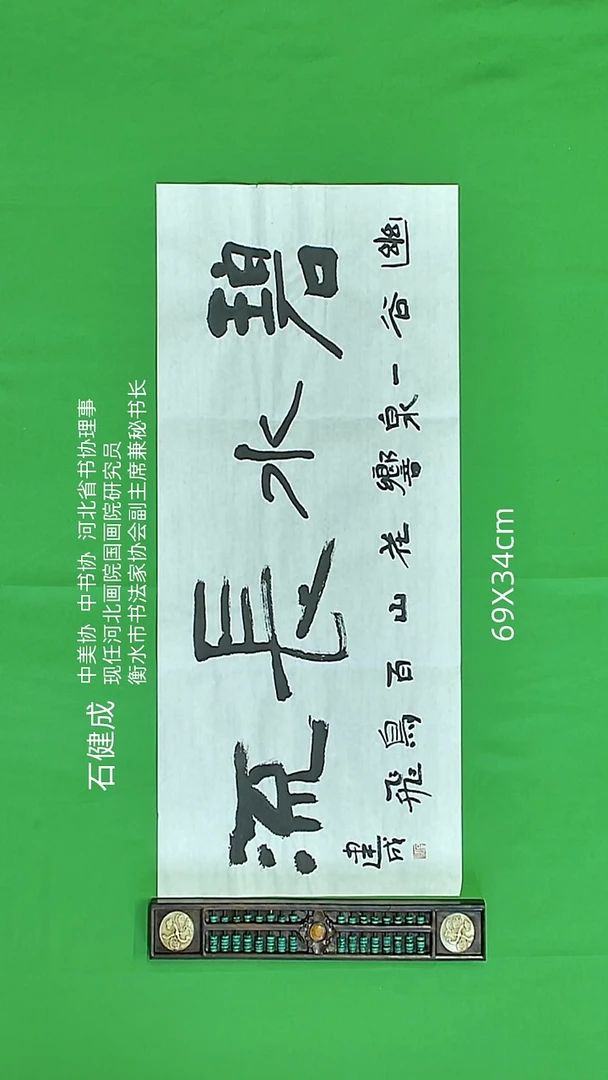 石健成
中美协 中书协 河北省书协理事
现任河北画院国画院研究员
衡水市书法家协会副主席兼秘书长
碧水長流
幽谷一泉響花山百鳥飛
建成
69X34cm